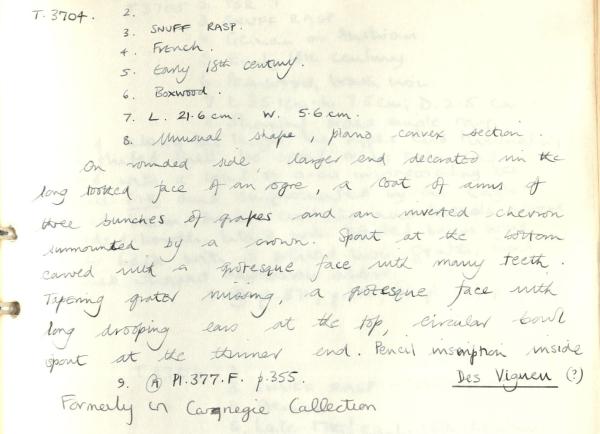 T.3704. 2.
3. SNUFF RASP.
4. French.
5. Early 18th century.
6. Boxwood.
7. L. 21.6cm. W. 5.6cm.
8. Unusual shape, plano convex section.
On rounded side, larger end decorated with the
long toothed face of an ogre, a coat of arms of
three bunches of grapes and an inverted chevron
surmounted by a crown. Spout at the bottom
carved with a grotesque face with many teeth.
Tapering grater missing, a grotesque face with
long drooping ears at the top, circular bowl
spout at the thinner end. Pencil inscription inside
9. (A) Pl.377.F. p.355. Des Vigneu (?)
Formerly in Carnegie Collection